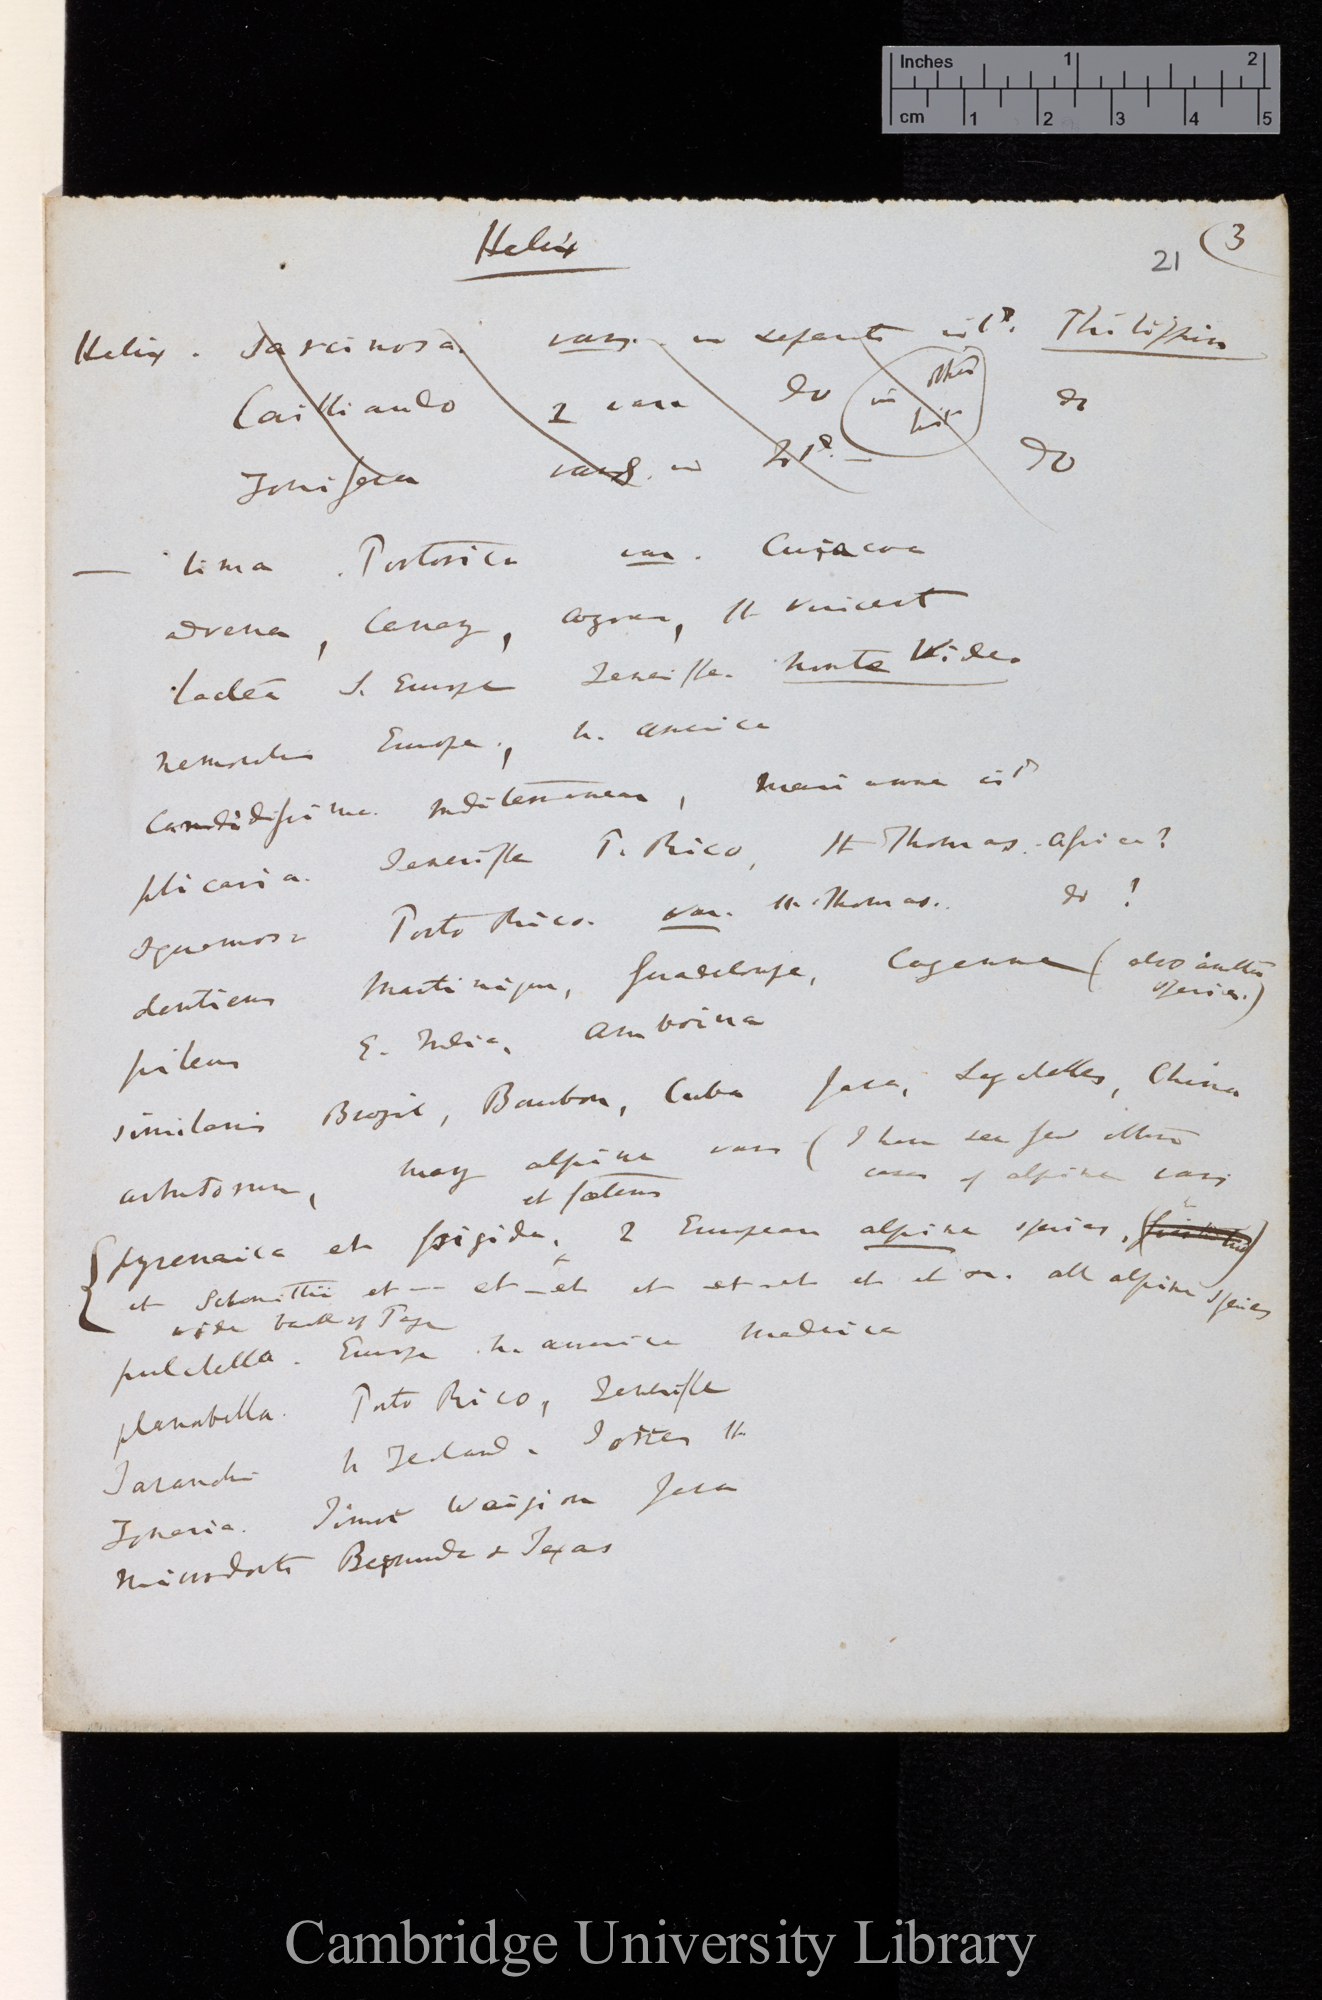 Inches 1 2
cm 1 2 3 4 5
Helix
21 (3
Helix. Sarcinosa. vars. in separate isld. Philippines
Cailliaudo 2 vars do in other isld do
Zonifera vars. in Isld. — do
— lima Portorico var. Curacoa
advena, Canary, Azores, St Vincent
lactea S. Europe Teneriffe. Monte Video
nemoralis Europe, N. America
Candidissima. Mediterranean, Marianne isld
plicaria. Teneriffe P. Rico, St Thomas. Africa?
squamosa Porto Rico. var. St. Thomas. do?
dentiens Martinique, Guadeloupe, Cayenne (also another species.)
pileus E. India, Amboina
similaris Brazil, Bourbon, Cuba Java, Seychelles, China
arbustorum, many alpine vars (I have seen few other
cases of alpine vars
et fœtens
{pyrenaica et frigida, 2 European alpine species,
et Schmittii et — et — et et et et et et or. all alpine species
vide back of Page
pulchella. Europe N. America Madeira
planorbella. Porto Rico, Teneriffe
N Zeland.
Timor Waigiou Java
Microdonta Bermuda & Texas
Cambridge University Library